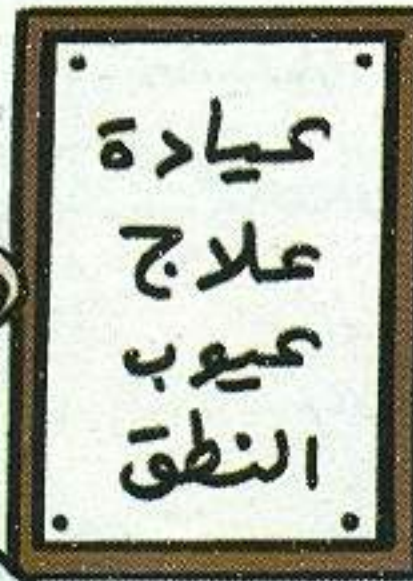 عيادة
علاج
عيوب
النطق